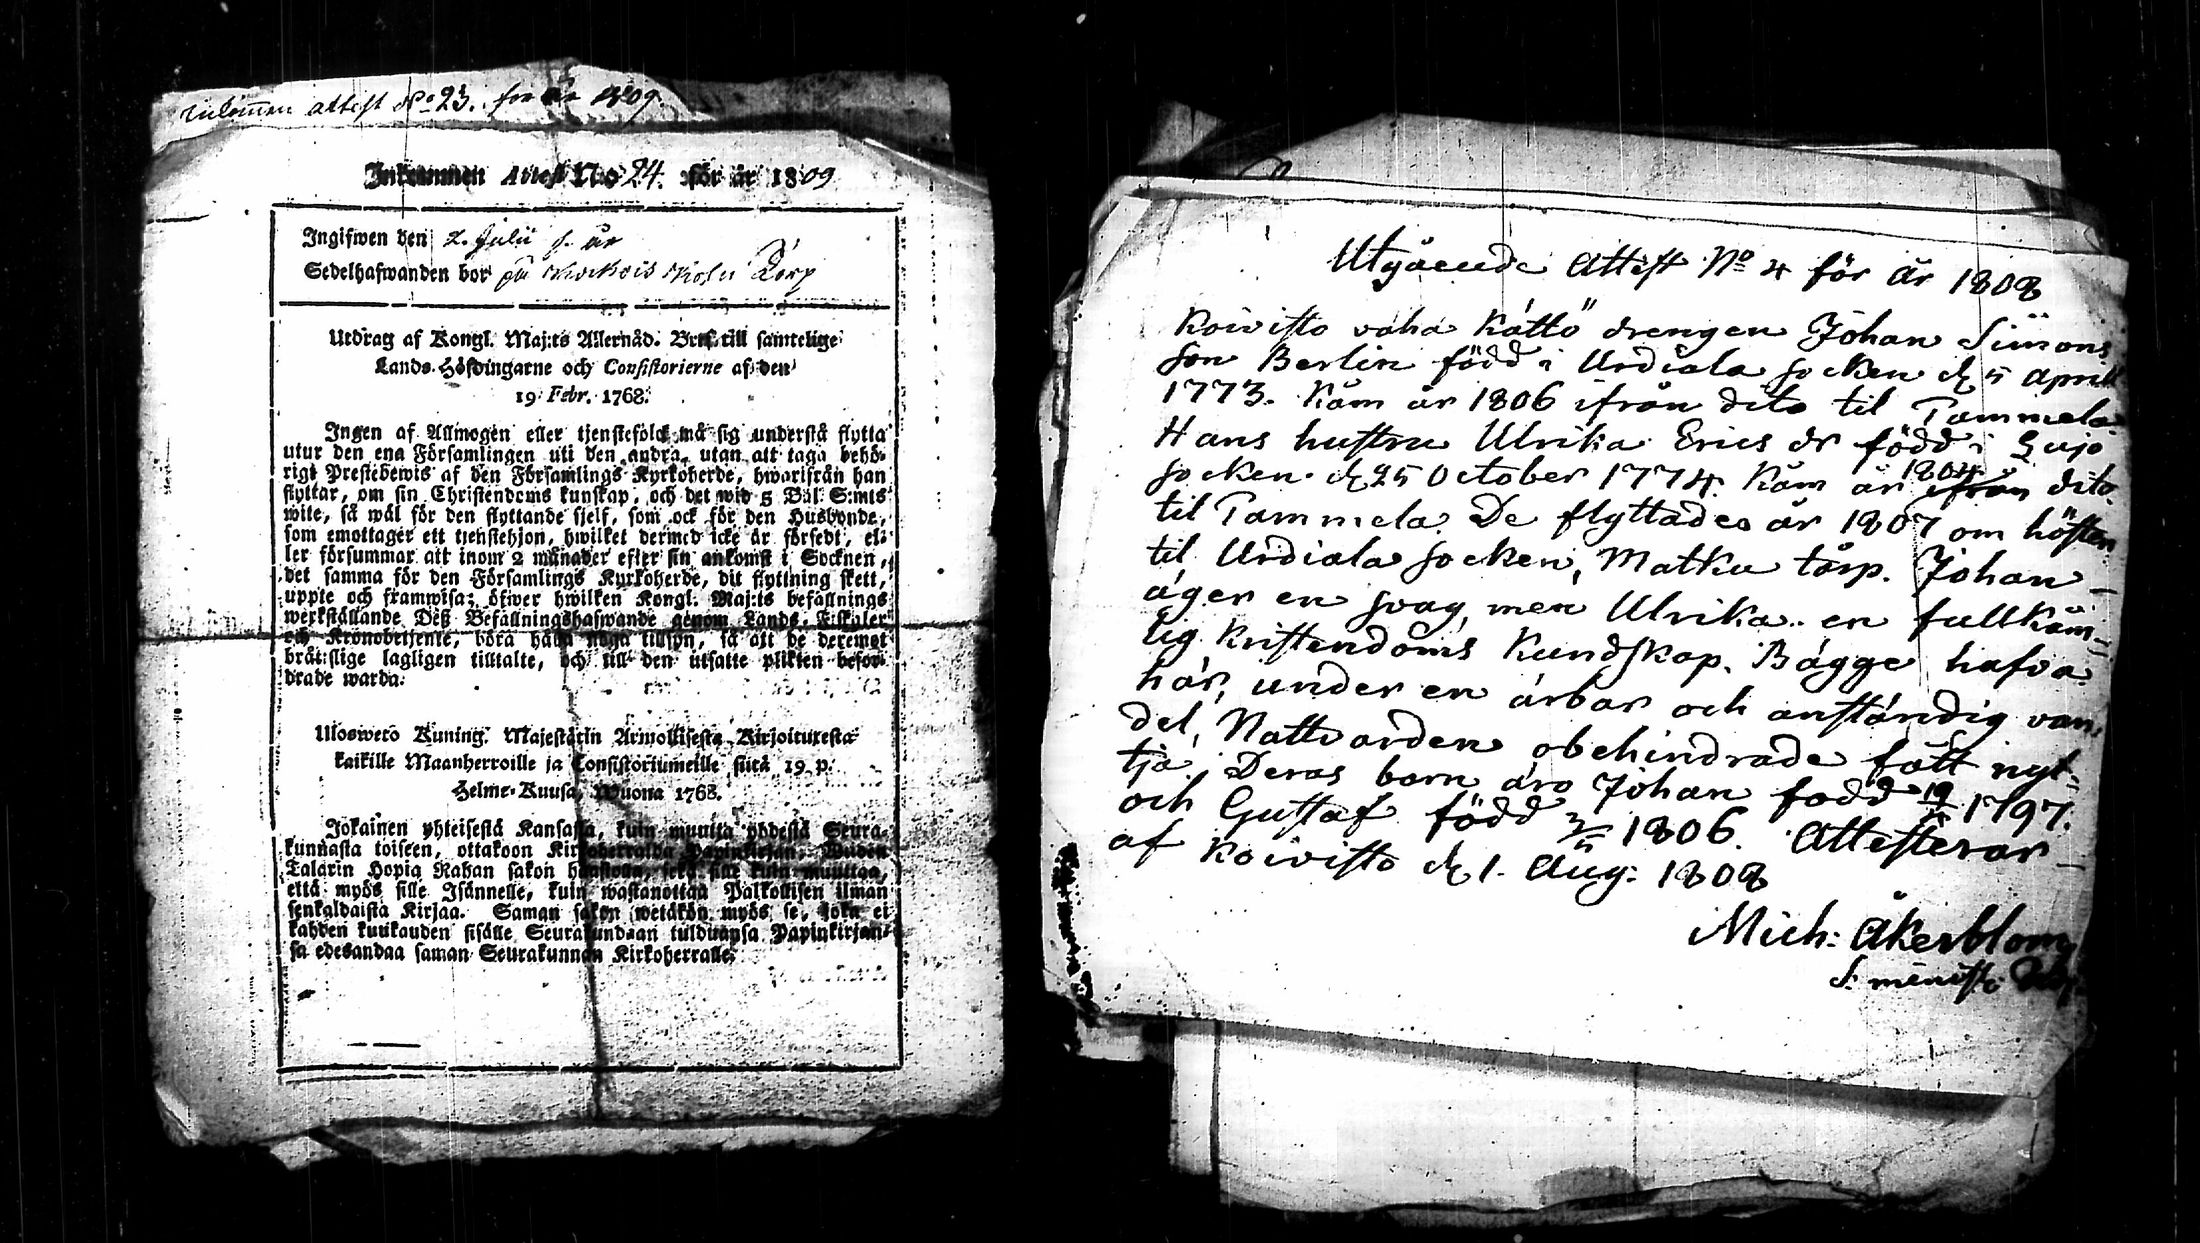 attest No 23. för år 1809.
Inkommen Attest N:o 24. för år 1809
Ingifwen den 2. Julii s. år
Sedelhafwanden bor på Torp
Utdrag af Kongl. Maj:ts Allernåd. Bref till samtelige
Lands-Höfdingarne och Consistorierne af den
19 Febr. 1768.
Ingen af Allmogen eller tjenstefolck må sig understå flytta
utur den ena Församlingen uti den andra, utan att taga behö-
rigt Prestebewis af den Församlings Kyrkoherde, hwarifrån han
flyttar, om sin Christendoms kunskap, och det wid 5 Dal. S:mts
wite, så wäl för den flyttande sjelf, som ock för den Husbonde,
som emottager ett tjenstehjon, hwilket dermed icke är försedt, el-
ler försummar att inom 2 månader efter sin ankomst i Socknen,
det samma för den Församlings Kyrkoherde, dit flyttning skett,
uppte och framwisa; öfwer hwilken Kongl. Maj:ts befallnings
werkställande Deß Befallningshafwande genom Lands-Fiskaler
och Kronobetjente, böra hafva noga tillsyn, så att de deremot
brätslige lagligen tilltalte, och till den utsatte plikten befor-
drade warda.
Ulosweto Kuning. Majestätin Armollisesta Kirjoituxesta
kaikille Maanherroille ja Consistoriumeille siitä 19 p.
Helme-Kuusa, Wuona 1768.
Jokainen yhteisestä Kansasta, kuin muutta yhdestä Seura-
kunnasta toiseen, ottakoon Kirkoherralda Papinkirjan, Wiiden
Talarin Hopia Rahan sakon haastolla, sekä sille kuin muuttaa,
että myös sille Isännelle, kuin wastanottaa Palkollisen ilman
senkaldaista Kirjaa. Saman sakon wetäkön myös se, joka ei
kahden kuukauden sisälle Seurakundaan tulduansa Papinkirjan-
sa edesandaa saman Seurakunnan Kirkoherralle.
Utgående Attest No 4 för år 1808
Koivisto vaha Kättö drengen Johan Simons
son Berlin född i Urdiala socken d. 5 April
1773. Kom år 1806 ifrån dito til Tammela.
Hans hustru Ulrika Erics dr född i Lojo
socken d. 25 October 1774. Kom år 1804 ifrån dito
til Tammela. De flyttades år 1807 om hösten
til Urdiala socken, Matku torp. Johan
äger en svag, men Ulrika en fullkom-
lig Kristendoms Kundskap. Bägge hafva
här, under en ärbar och anständig van-
del, Nattvarden obehindrade fått nyt-
tja. Deras barn äro Johan född 19/ 1797.
och Gustaf född 3/5 1806. Attesterar
af Koivisto d. 1. Aug: 1808
Mich: Åkerblom